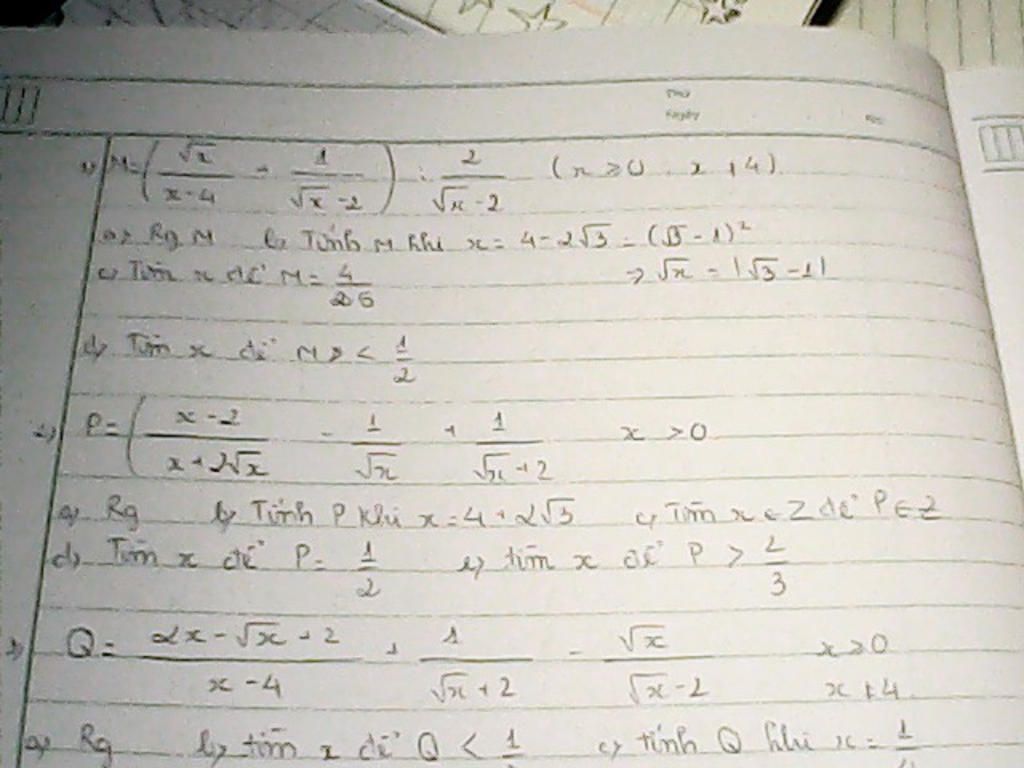 Thứ
Ngày
1) M = ( √x / (x - 4) + 1 / (√x - 2) ) : 2 / (√x - 2) (x ≥ 0 ; x ≠ 4)
a) Rg M b) Tính M khi x = 4 - 2√3 = (√3 - 1)²
c) Tìm x để M = 4 / 25 => √x = |√3 - 1|
d) Tìm x để M < 1 / 2
2) P = ( (x - 2) / (x + 2√x) - 1 / √x + 1 / (√x + 2) x > 0
a) Rg b) Tính P khi x = 4 + 2√3 c) Tìm x ∈ Z để P ∈ Z
d) Tìm x để P = 1 / 2 e) tìm x để P > 2 / 3
3) Q = (2x - √x + 2) / (x - 4) + 1 / (√x + 2) - √x / (√x - 2) x ≥ 0 x ≠ 4
a) Rg b) tìm x để Q < 1 / c) tính Q khi x = 1 /